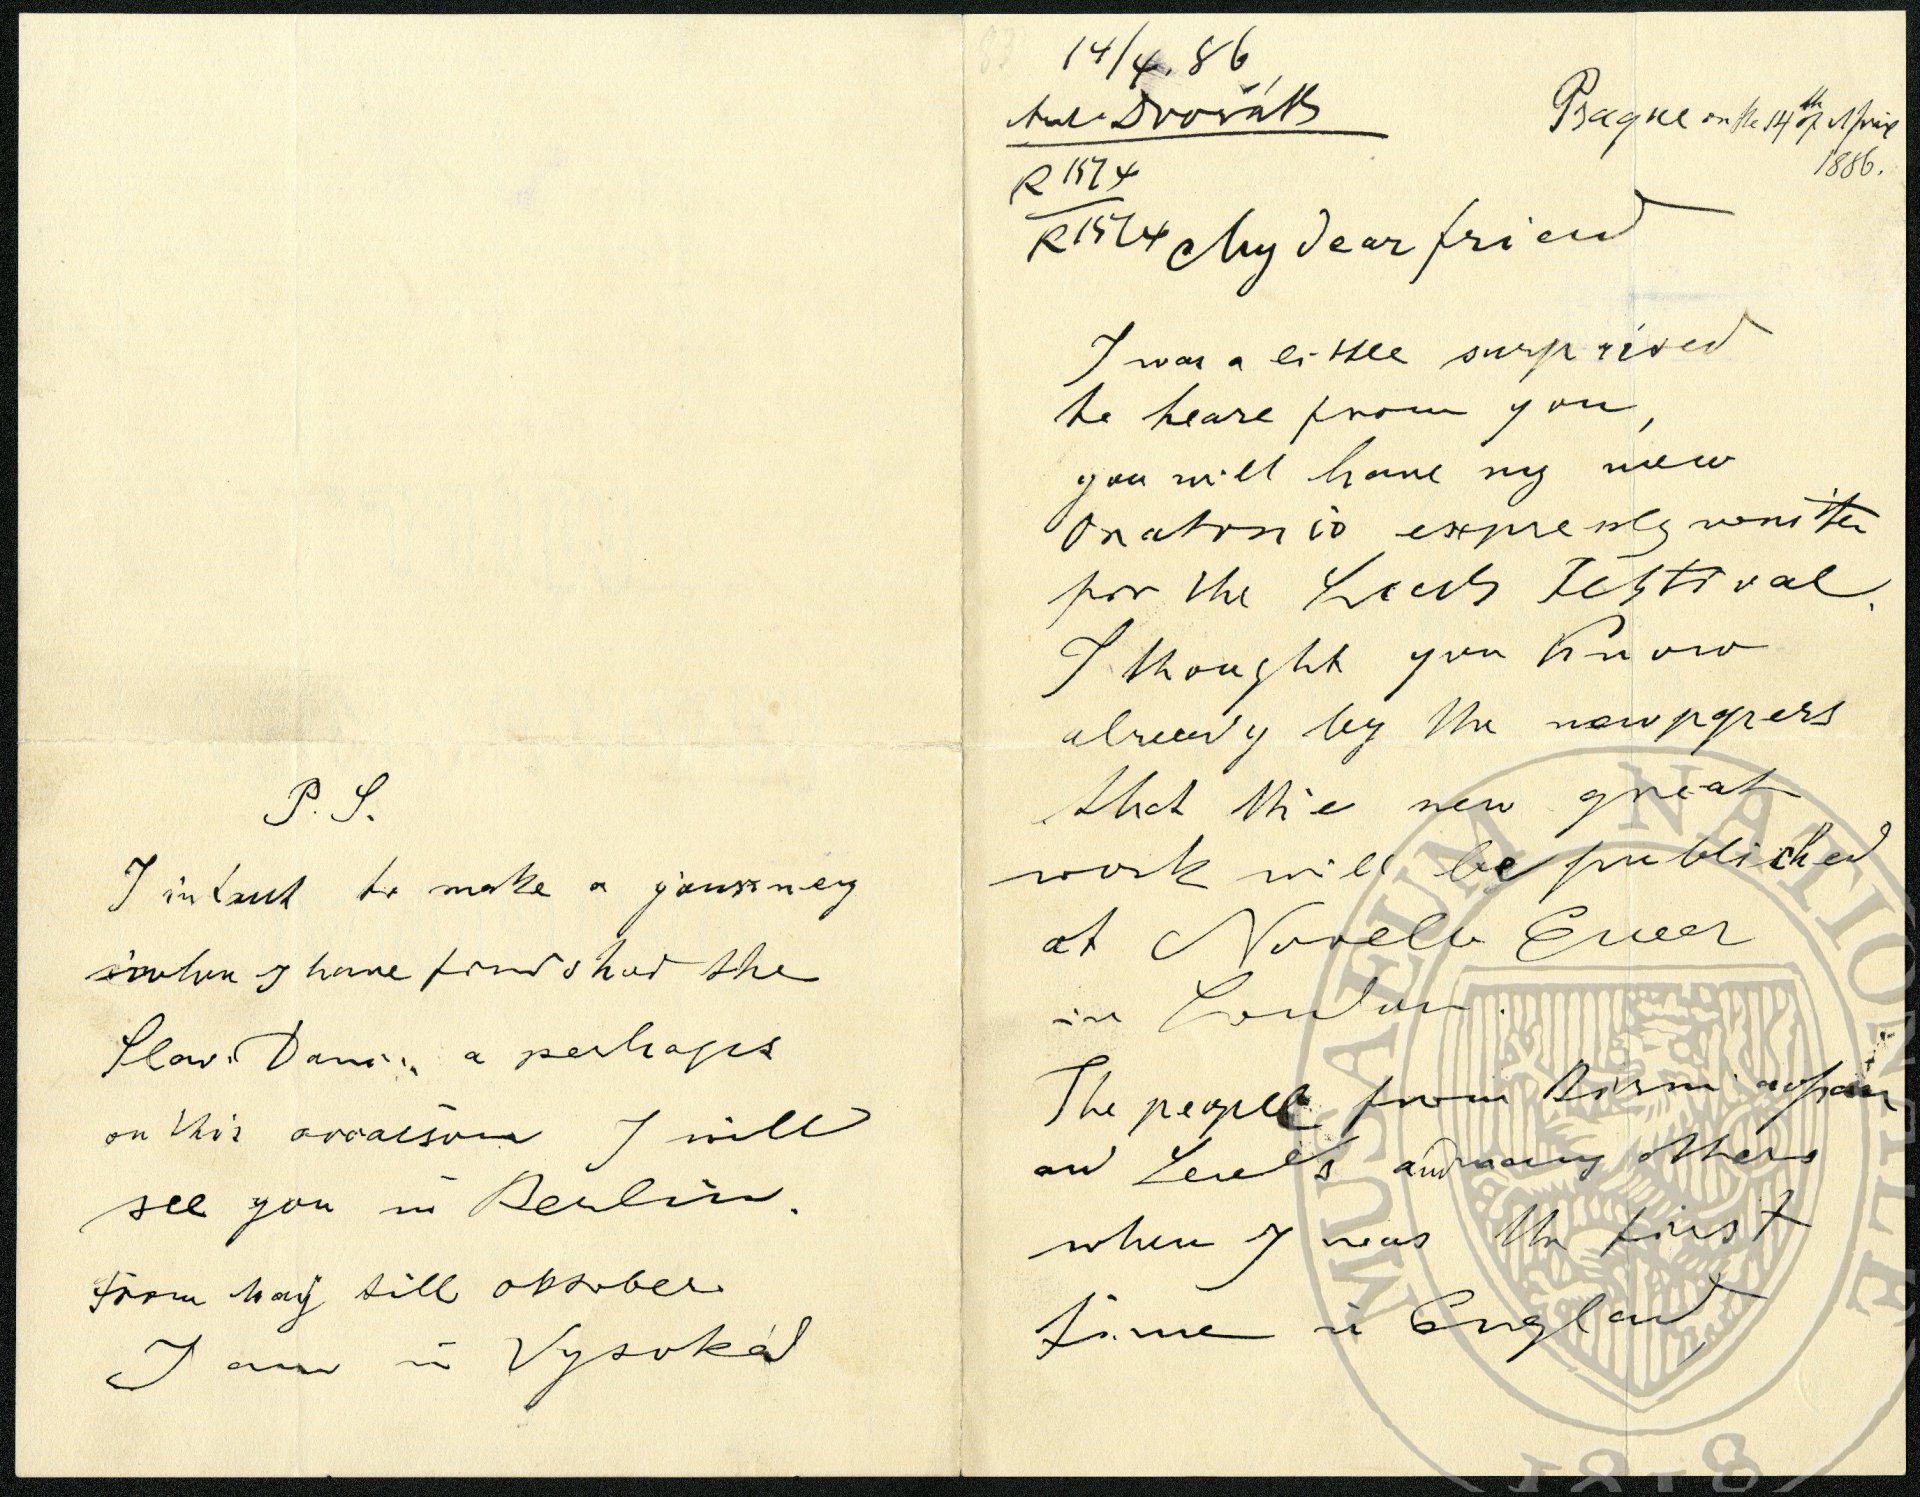 14/4. 86
Dvořák
R 1574
R 1574
Prague on the 14th of April
1886.
My dear friend
I was a little surprised
to heare from you,
you will have my new
Oratorio expressly written
for the Leeds Festival.
I thought you know
already by the newpapers
that this new great
work will be publiched
at Novello Ewer
in London.
The people from
and Leeds and many others
when I was the first
time in England,
P. S.
I intent to make a journey
when I have finished the
Slav. Dances, a perhaps
on this occaison I will
see you in Berlin.
From may till oktober
I am in Vysoká
MUSAEUM NATIONALE
1818